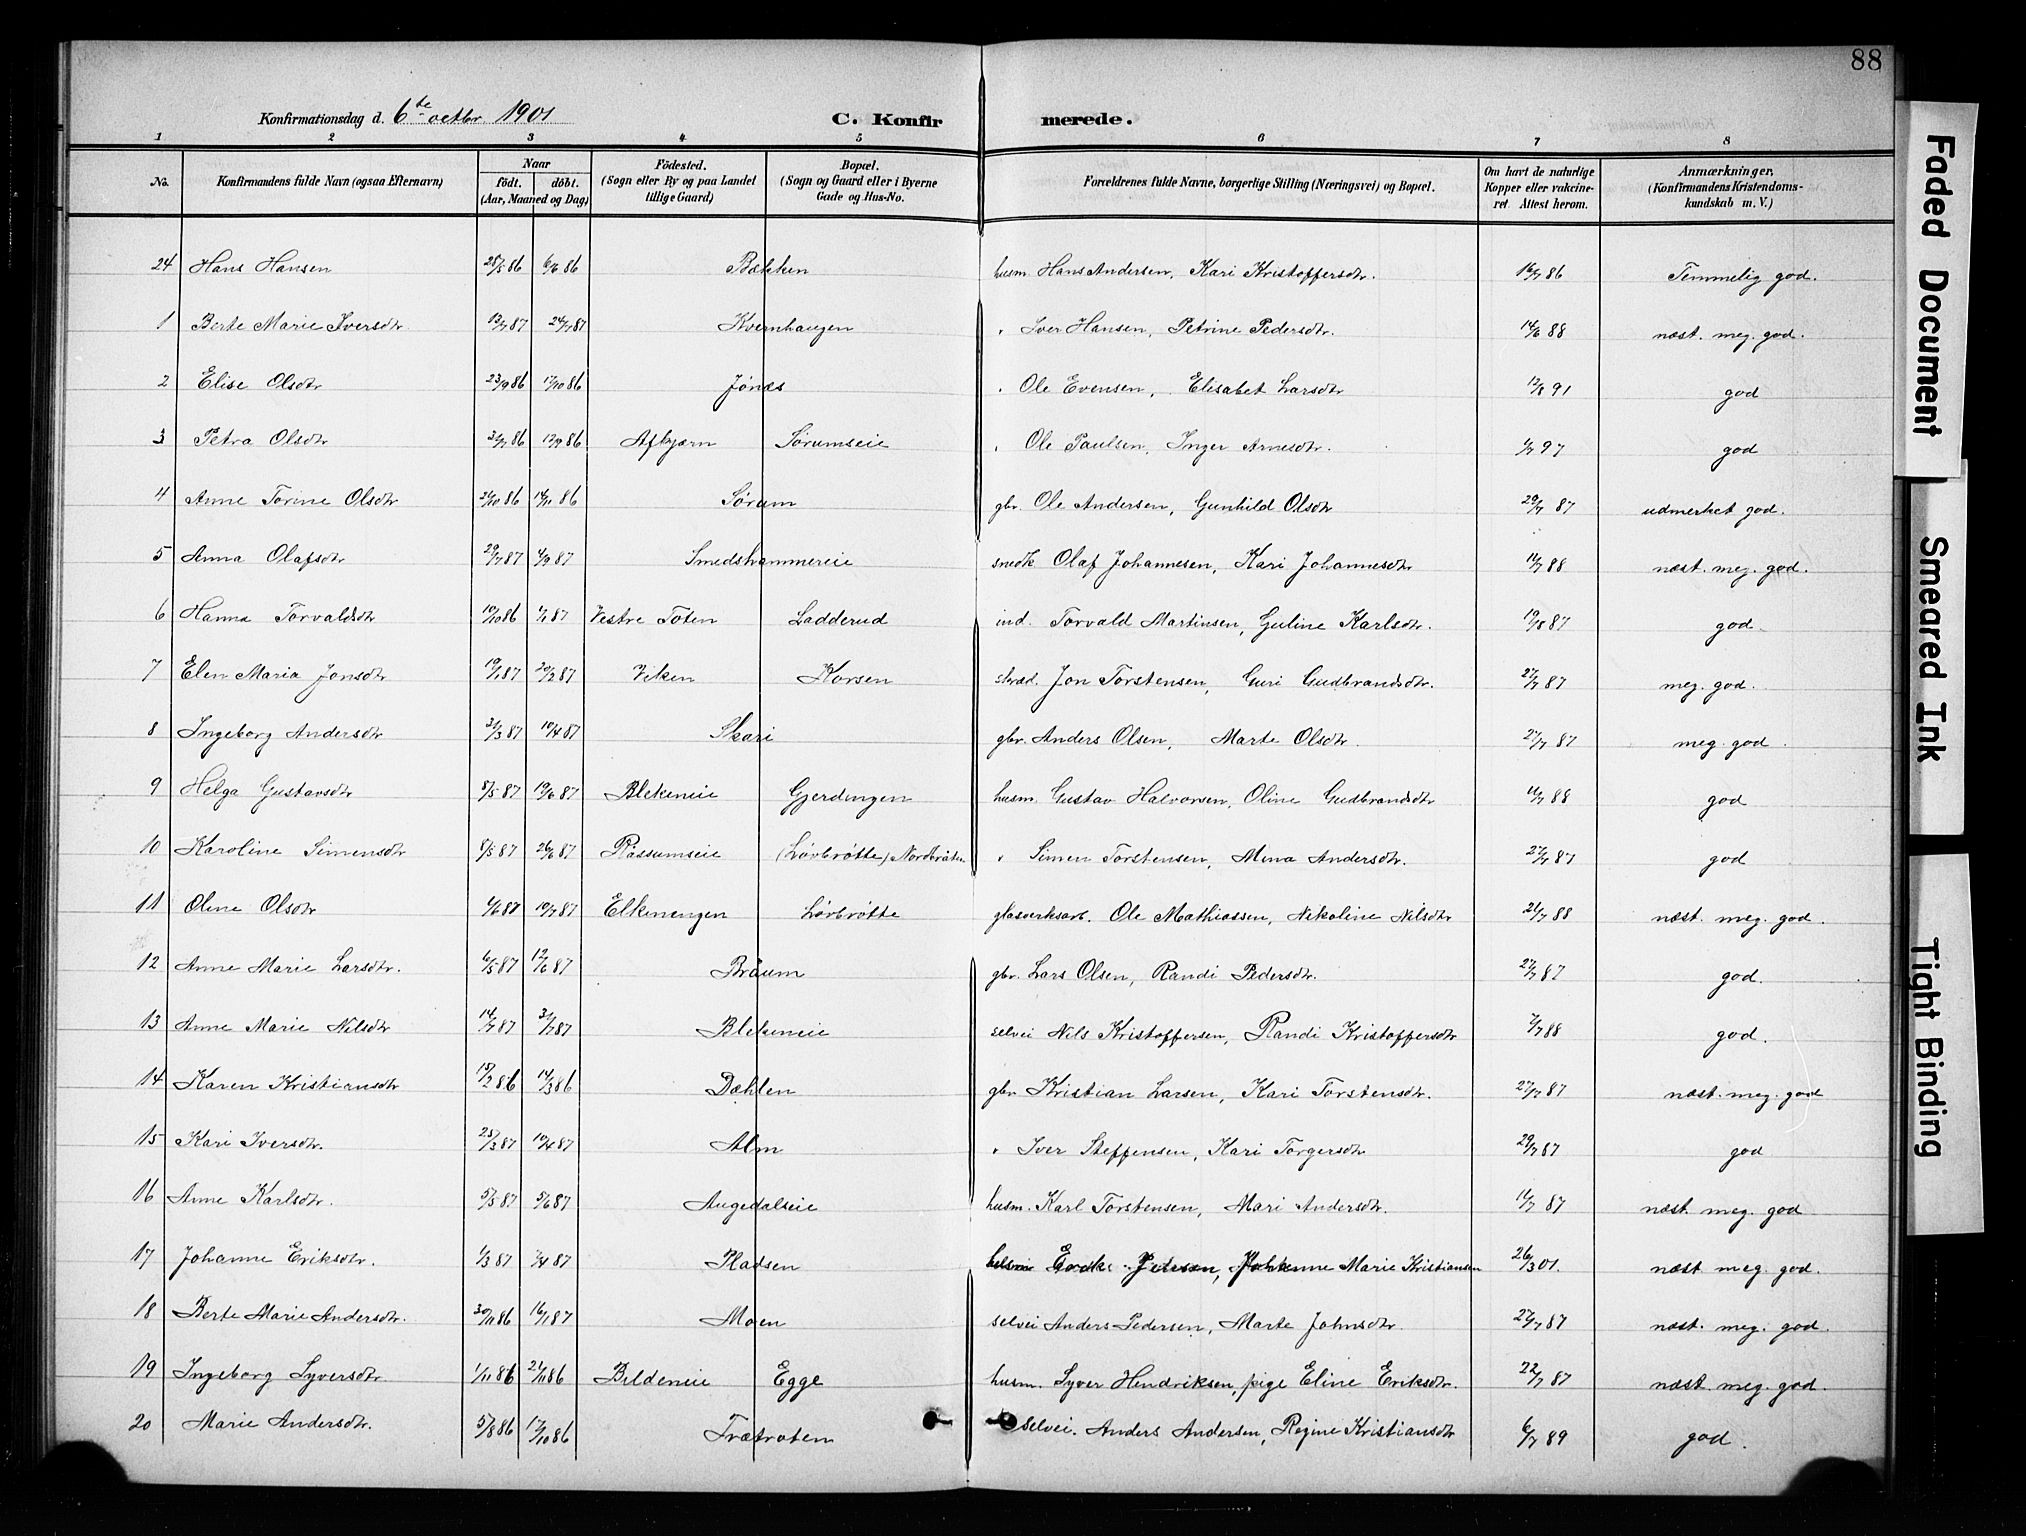 88
Konfirmationsdag d. 6te octbr. 1901 C. Konfirmerede.
1 2 3 4 5 6 7 8
No. Konfirmandens fulde Navn (ogsaa Efternavn) Naar født. døbt. (Aar, Maaned og Dag) Fødested. (Sogn eller By og paa Landet tillige Gaard) Bopæl. (Sogn og Gaard eller i Byerne Gade og Hus-No. Forældrenes fulde Navne, borgerlige Stilling (Næringsvei) og Bopæl. Om havt de naturlige Kopper eller vakcineret. Attest herom. Anmærkninger, (Konfirmandens Kristendomskundskab m. V.)
24 Hans Hansen 28/5 86 6/6 86 Bakken husm. Hans Andersen, Kari Kristoffersdtr. 16/7 86 Temmelig god.
1 Berte Marie Iversdtr. 13/7 87 24/7 87 Kvernhaugen " Iver Hansen, Petrine Pedersdtr. 14/6 88 næst. meg. god.
2 Elise Olsdtr 23/9 86 17/10 86 Jønæs " Ole Evensen, Elisabet Larsdtr 12/8 91 god
3 Petra Olsdtr 86 86 Afkjærn Sørumseie " Ole Paulsen, Inger Arnesdtr. 97 god
4 Anne Torine Olsdtr 86 14/11 86 Sørum gbr. Ole Andersen, Gunhild Olsdtr 29/7 87 udmerket god.
5 Anna Olafsdtr 29/7 87 4/9 87 Smedshammereie snedk Olaf Johannesen, Kari Johannesdtr 88 næst. meg. god.
6 Hanna Torvaldsdtr 19/10 86 87 Vestre Toten Ladderud ind. Torvald Martinsen, Guline Karlsdtr. 19/8 87 god
7 Elen Maria Jonsdtr 19/1 87 20/2 87 Viken Korsen skræd. Jon Torstensen, Guri Gudbrandsdtr. 27/7 87 meg. god.
8 Ingeborg Andersdtr 87 10/4 87 Skari gbr. Anders Olsen, Marte Olsdtr. 27/7 87 meg. god.
9 Helga Gustavsdtr 8/5 87 19/6 87 Blekeneie Gjerdingen husm. Gustav Halvorsen, Oline Gudbrandsdtr 88 god
10 Karoline Simensdtr 8/5 87 26/6 87 Rassumseie (Lørbrøtte) Nordbråten " Simen Torstensen, Mina Andersdtr. 27/7 87 god
11 Oline Olsdtr 87 10/7 87 Elkenengen Lørbrøtte glasverksarb. Ole Mathiassen, Nikoline Nilsdtr 88 næst. meg. god.
12 Anne Marie Larsdtr. 6/5 87 12/6 87 Bråum gbr. Lars Olsen, Randi Pedersdtr. 27/7 87 god.
13 Anne Marie Nilsdtr 14/7 87 31/7 87 Blekeneie selvei Nils Kristoffersen, Randi Kristoffersdtr 88 god.
14 Karen Kristiansdtr 86 14/3 86 Dæhlen gbr. Kristian Larsen, Kari Torstensdtr. 27/7 87 næst. meg. god
15 Kari Iversdtr. 25/3 87 10/4 87 Alm " Iver Steffensen, Kari Torgersdtr 29/7 87 god
16 Anne Karlsdtr. 5/5 87 5/6 87 Augedalseie husm. Karl Torstensen, Mari Andersdtr. 87 næst. meg. god
17 Johanne Eriksdtr. 1/3 87 87 Pladsen Marie Kristiansen 26/3 01. næst. meg. god.
18 Berte Marie Andersdtr. 30/11 86 16/1 87 Moen selvei Anders Pedersen, Marte Johnsdtr. 27/7 87 næst. meg. god.
19 Ingeborg Syversdtr 1/11 86 21/11 86 Bildeneie Egge husm. Syver Hendriksen, pige Eline Eriksdtr. 22/7 87 næst. meg. god.
20 Marie Andersdtr. 5/8 86 17/10 86 Træroten selvei. Anders Andersen, Regine Kristiansdtr 6/7 89 god.
Faded Document
Smeared Ink
Tight Binding